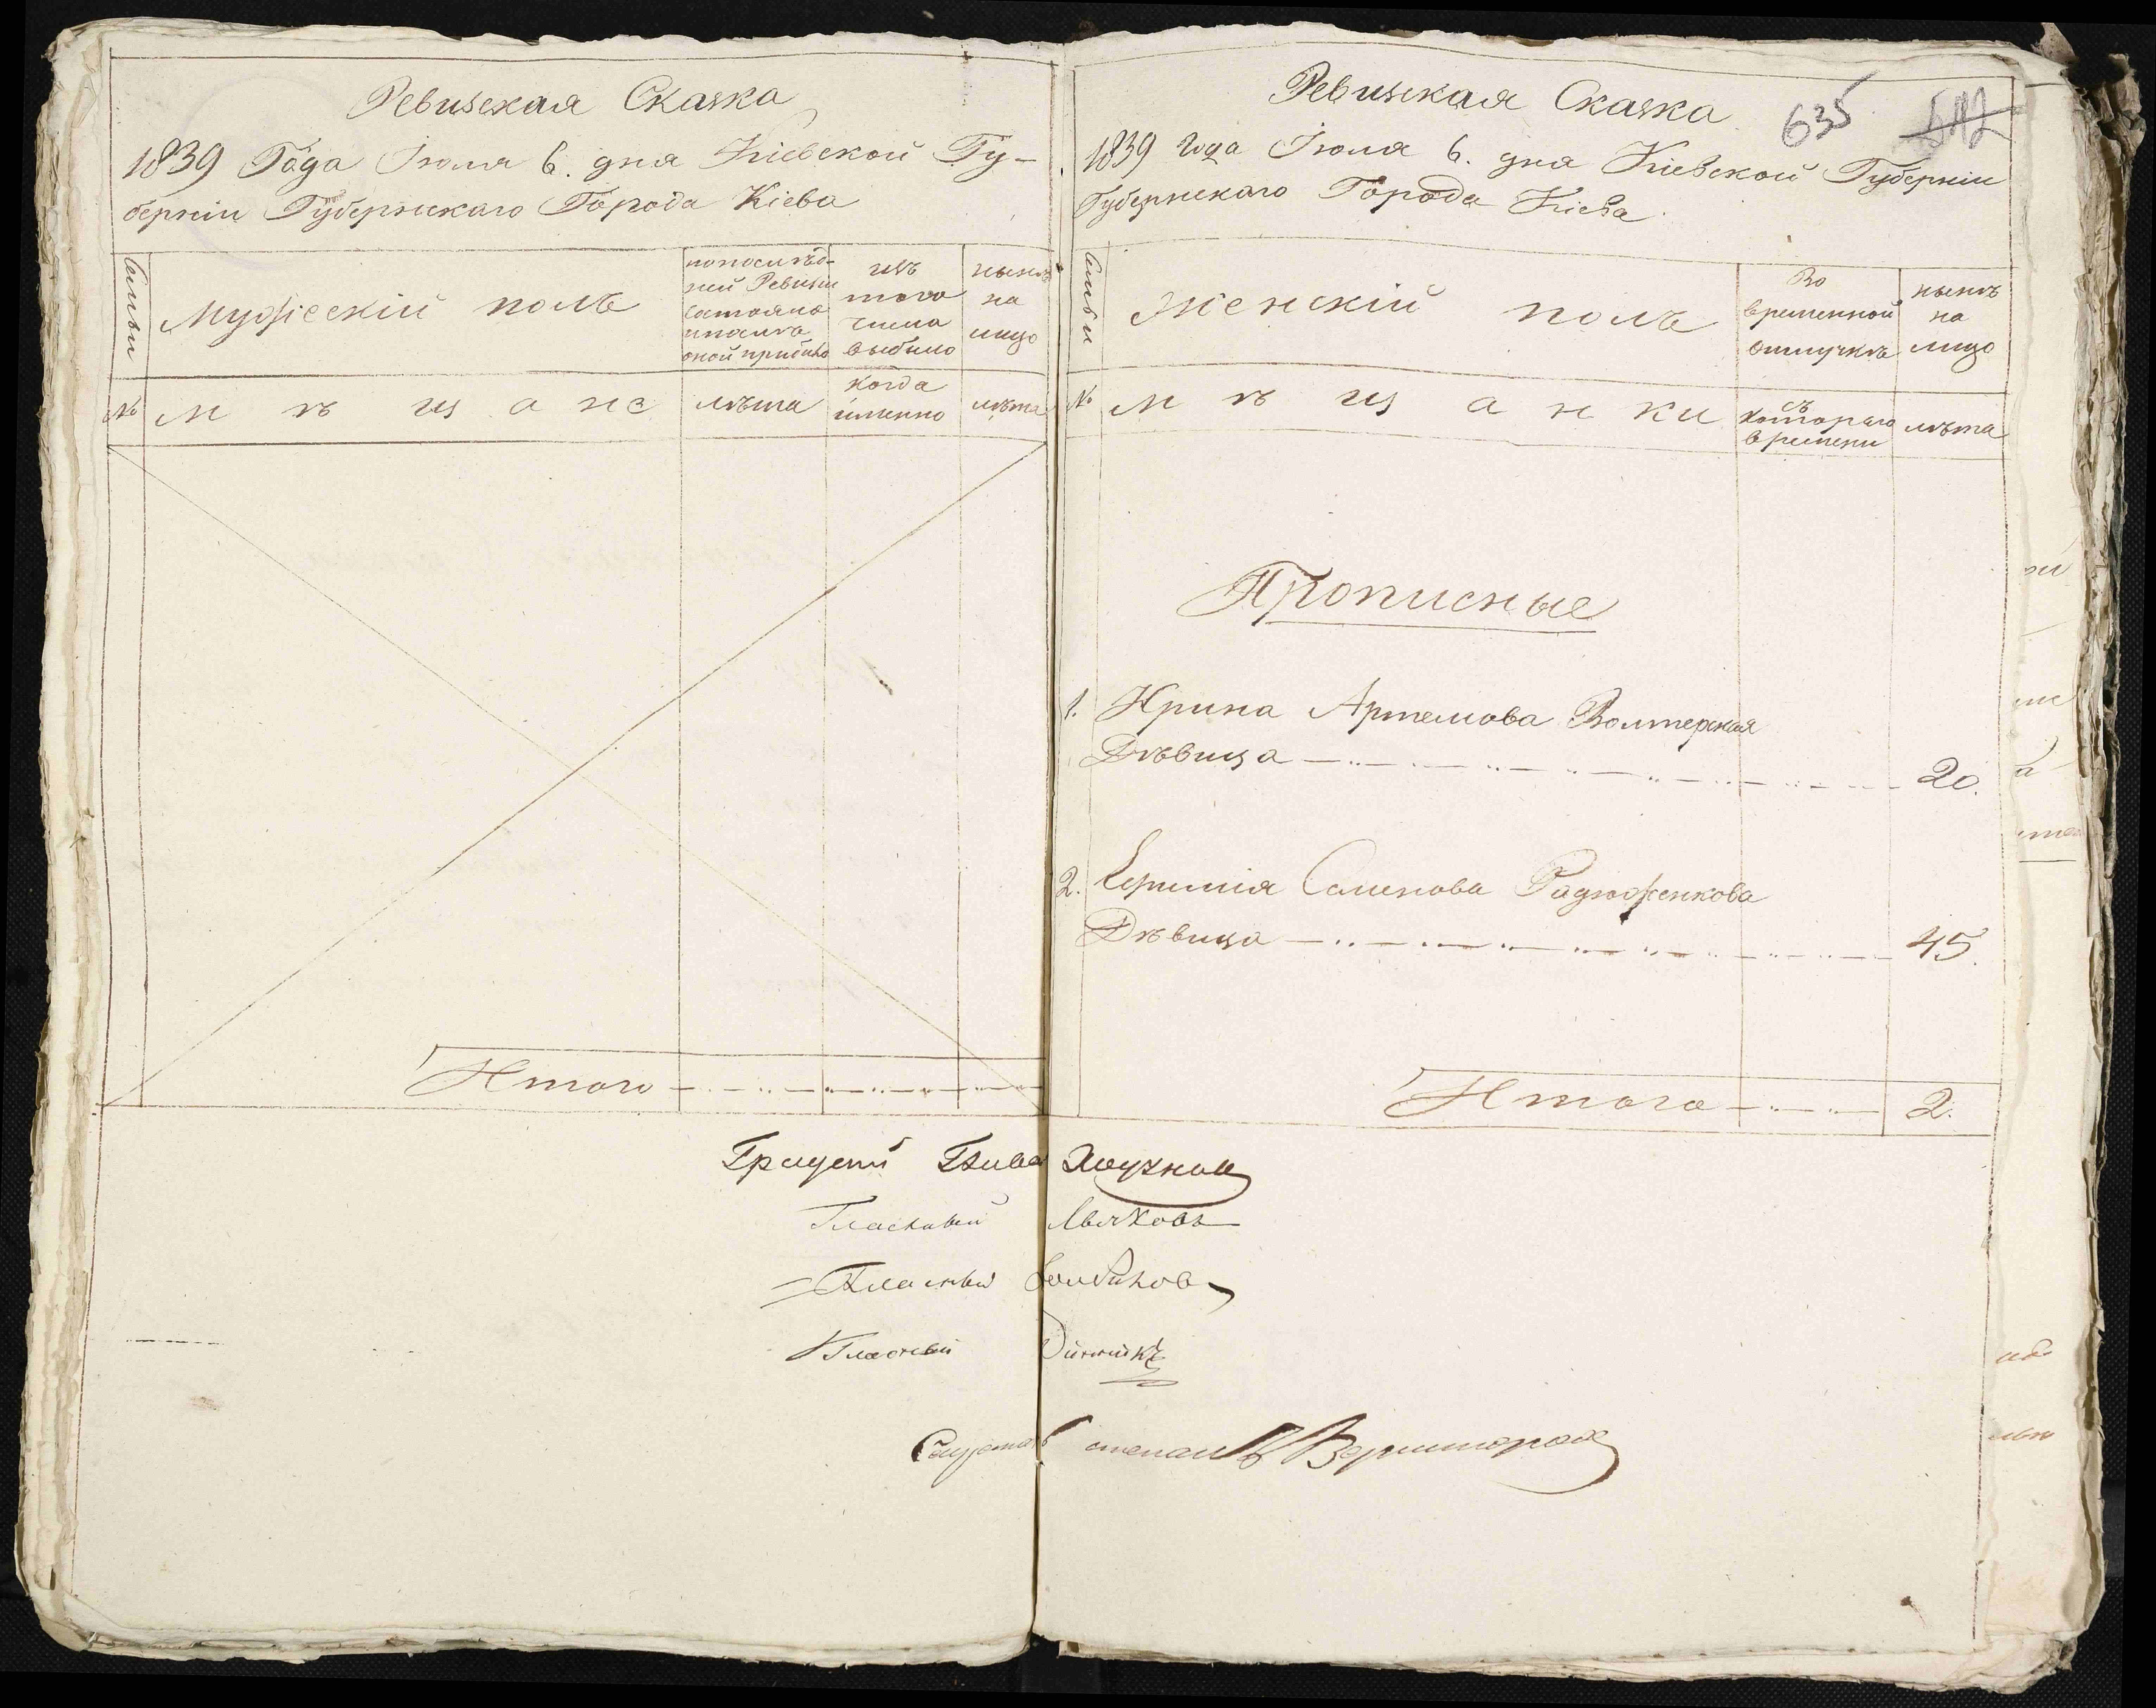 Ревизская Сказка
1839 Года Іюля 6. дня Кіевской Гу-
берніи Губернскаго Города Кіева
Семьи
Мужескій полъ
по послѣд-
ней Ревизіи
состояло
и послѣ
оной прибыло
изъ
того
числа
выбыло
нынѣ
на
лицо
№
мѣщане
лѣта
когда
именно
лѣта
Итого
Ревизская Сказка
635
512
1839 года Іюля 6. дня Кіевской Губерніи
Губернскаго Города Кіева.
Семьи
Женскій полъ
Во
временной
отлучкѣ
нынѣ
на
лицо
№
мѣщанки
съ
котораго
времени
лѣта
Прописные
1. Ирина Артемова Волтерская
Дѣвица 20.
2. Ефимія Семенова
Дѣвица 45.
Итого 2.
Градской Глава Ходуновъ
Гласный Лычковъ
Гласный
Гласный Динникъ
степанъ